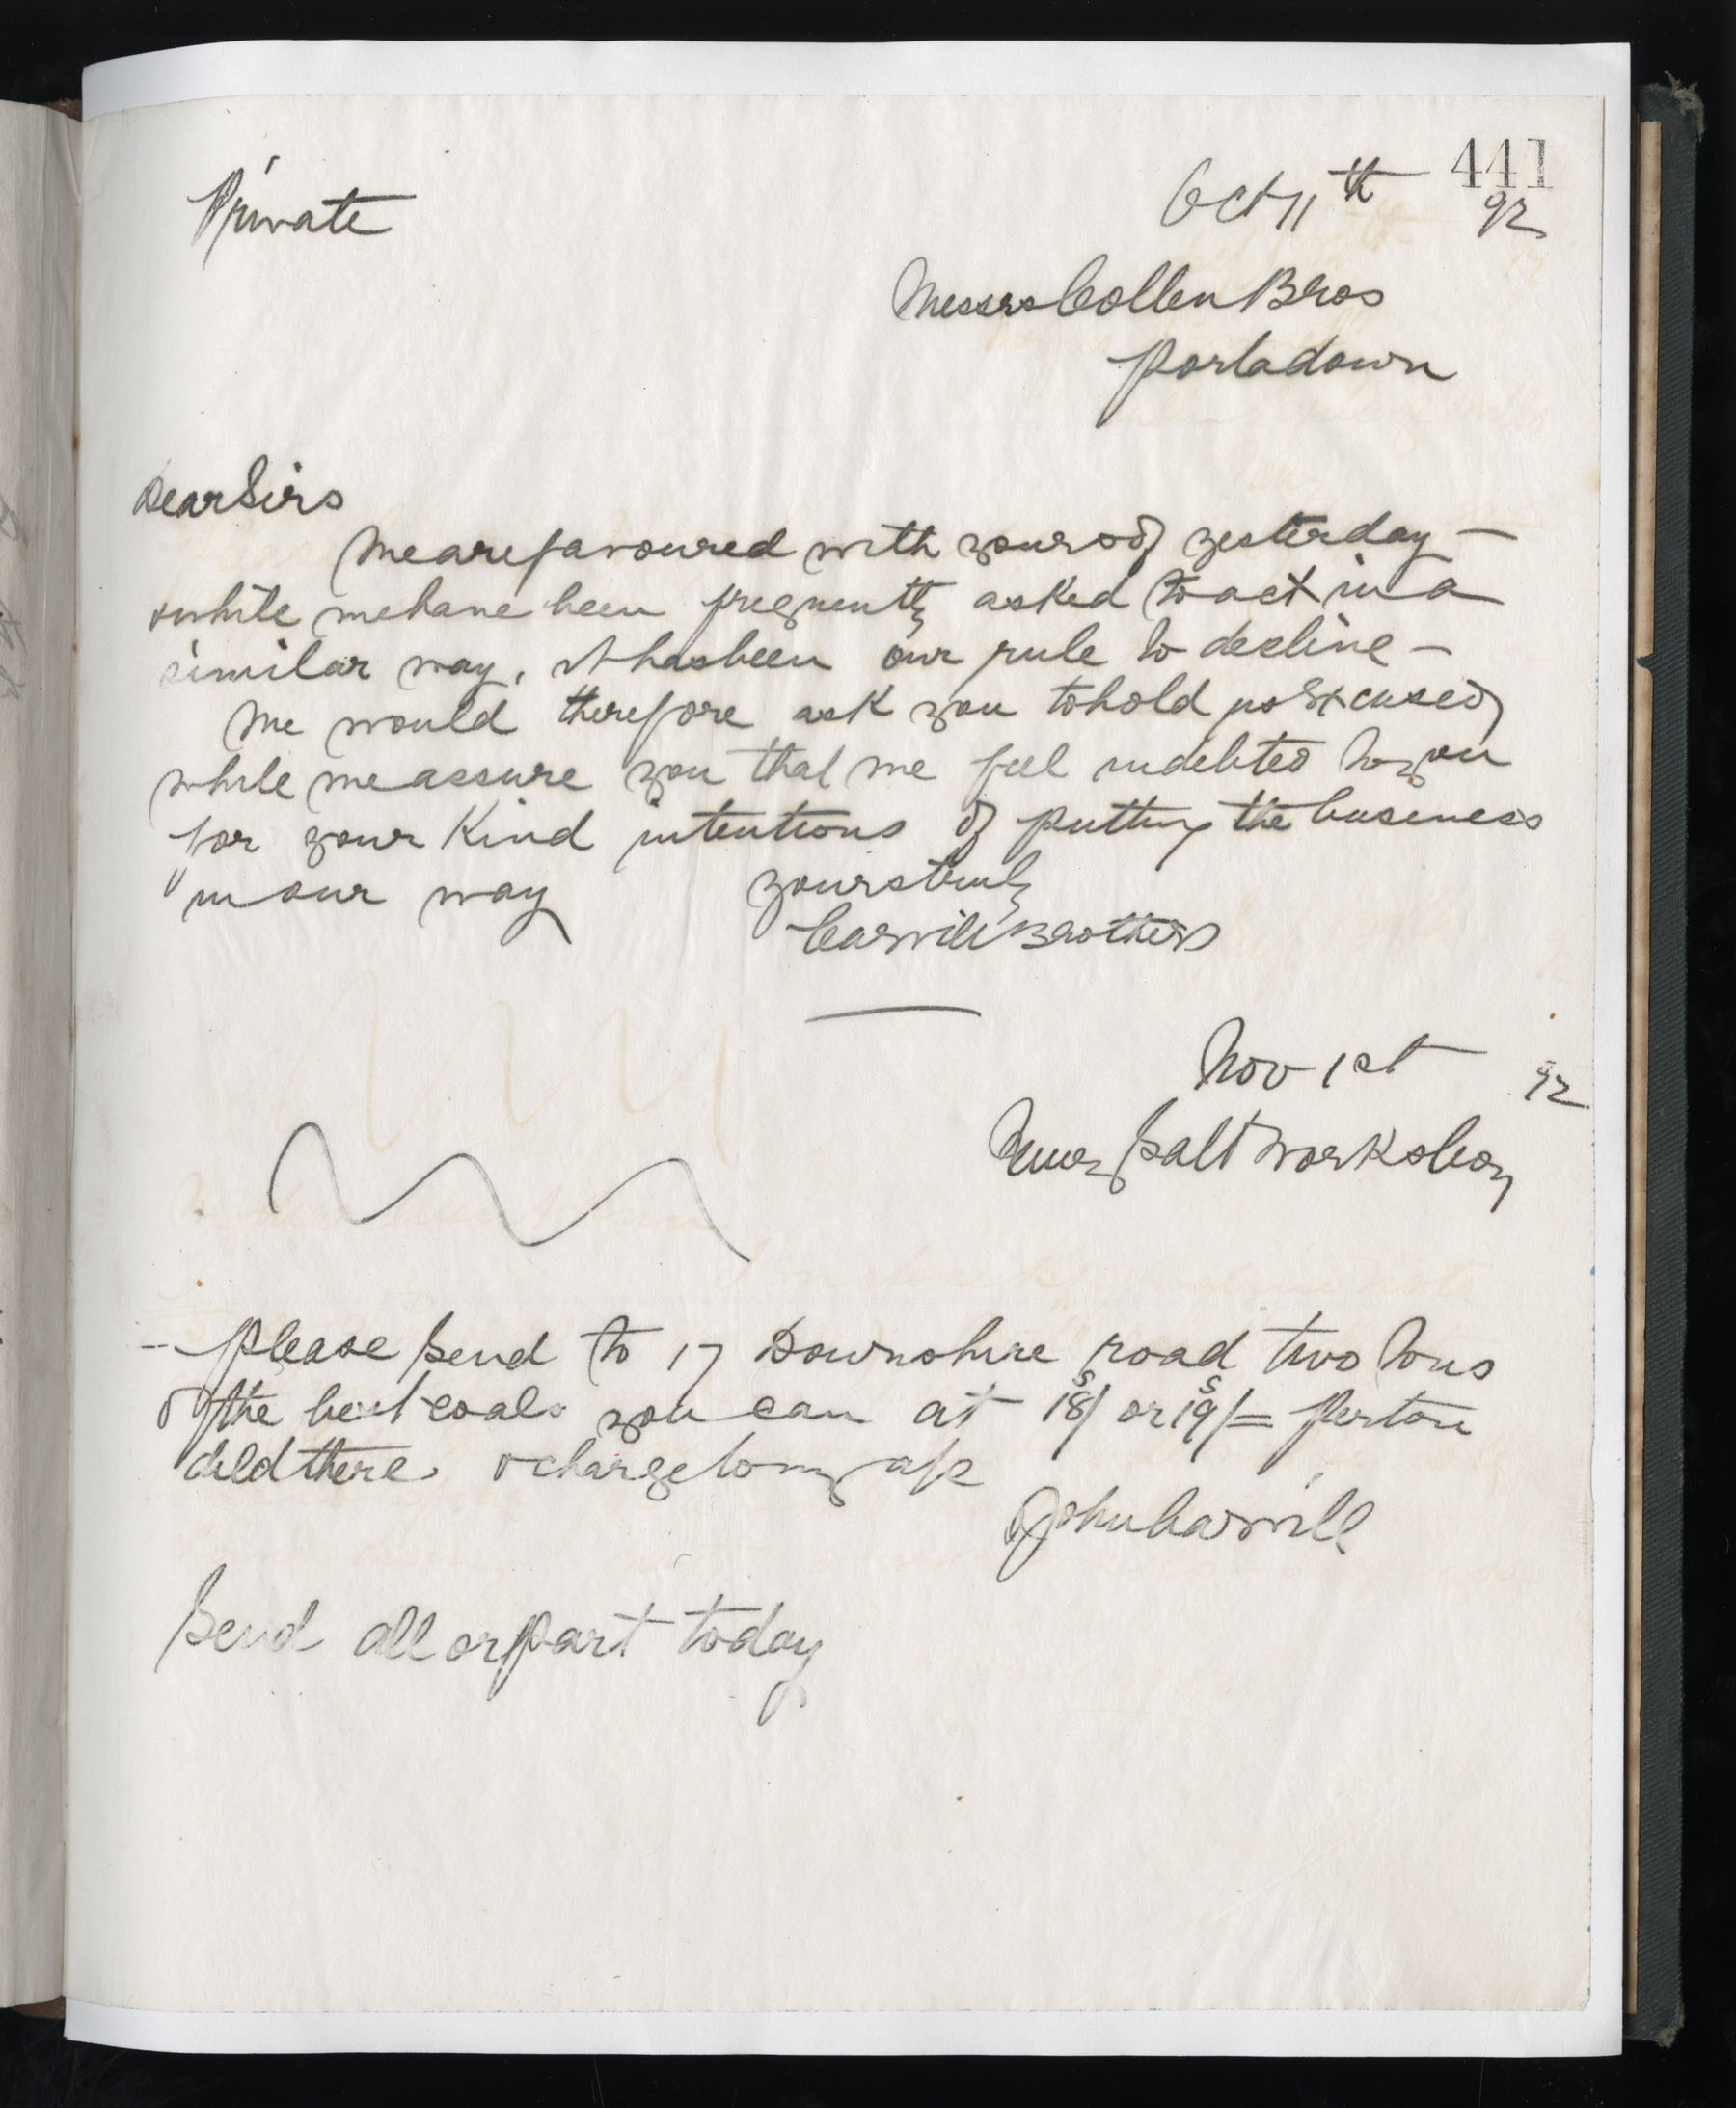 441
Private
Oct 11th 92
Messrs Collen Bros
Portadown
Dear Sirs
We are favoured with yours of yesterday —
& while we have been frequently asked to act in a
similar way, it has been our rule to decline —
We would therefore ask you to hold us Excused
while we assure you that we feel indebted to you
for your Kind intentions of putting the business
in our way
yours truly
Carvill Brothers
Nov 1st 92
Newry Salt Works Coy
Please Send to 17 Downshire road two tons
of the best coals you can at 18s/ or 19s/= per ton
deld there & charge to my a/c
John Carvill
Send all or part today